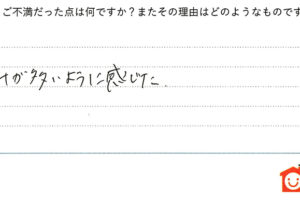 ご不満だった点は何ですか？またその理由はどのようなものです
が多いように感じた.